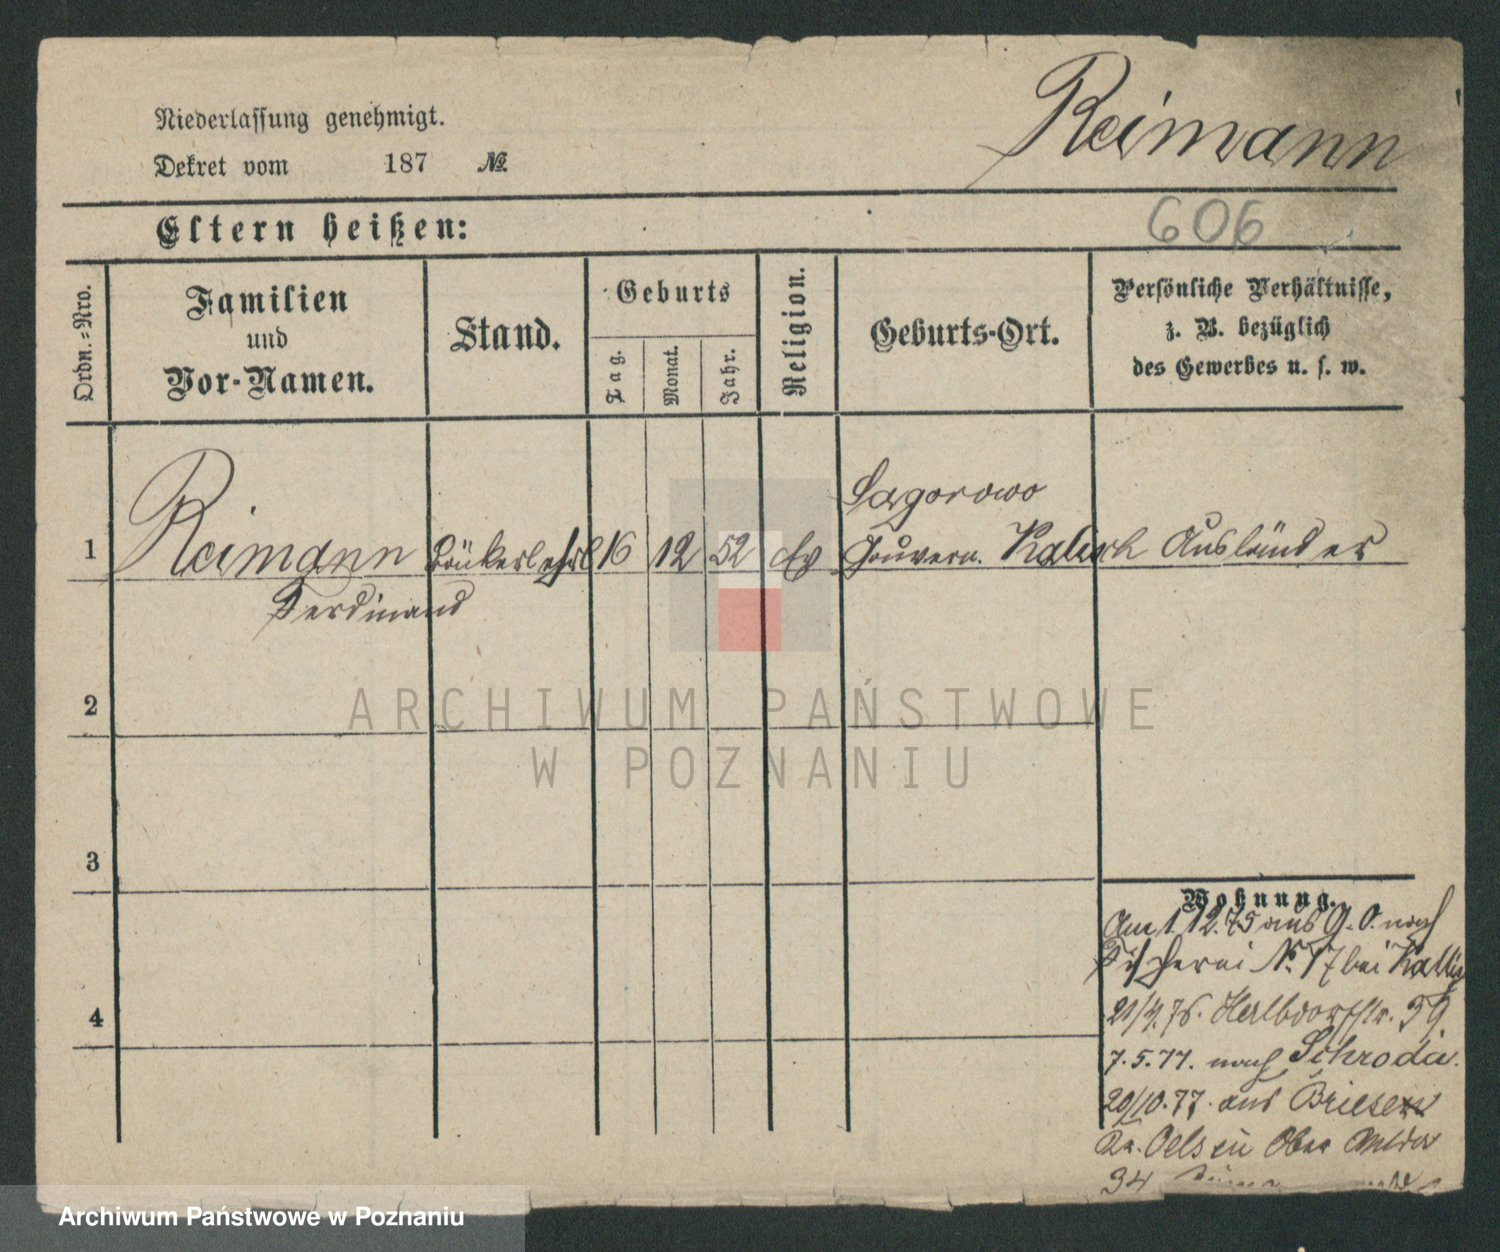 Reimann
Niederlassung genehmigt.
Dekret vom 187 No.
606
Eltern heißen:
Ordn.-Nro.
Familien
und
Vor-Namen.
Stand.
Geburts
Tag.
Monat.
Jahr.
Religion.
Geburts-Ort.
Persönliche Verhältnisse,
z. B. bezüglich
des Gewerbes u. s. w.
Sagorowo
1 Reimann 16 12 52 Gouvern. Kalisch Ausländer
Ferdinand
2
3
4
Wohnung.
Am 1.12.75 aus G. O. nach
Fischerei No. 17 bei
21/4.76. Halbdorfstr. 39
7.5.77. nach Schroda.
20/10.77. aus Briesen
Kr. Oels in Ober
34
ARCHIWUM PAŃSTWOWE
W POZNANIU
Archiwum Państwowe w Poznaniu